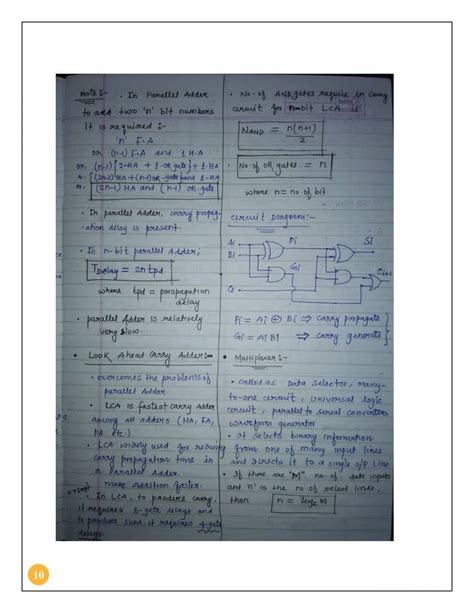 note :-
· In Parallel Adder
to add two 'n' bit numbers
it is required :-
'n' F.A
or, (n-1) F.A and 1 H.A
or, (n-1){2-HA + 1-OR gate} + 1-HA
(2n-2)HA + (n-1)OR-gate and 1-HA
(2n-1) HA and (n-1) OR-gate
· In parallel Adder, carry propag-
ation delay is present.
· In n-bit parallel Adder;
TDelay = 2n tpd
where tpd = propagation
delay
· parallel Adder is relatively
very slow.
• Look Ahead Carry Adder :-
· overcomes the problems of
parallel Adder
· LCA is fastest carry Adder
among all adders (HA, FA,
PA etc.)
· LCA widely used for reducing
carry propagation time in
a Parallel Adder.
make Addition faster.
· In LCA, to produce carry
it requires 3-gate delays and
to produce sum, it requires 4-gate
delays
· No. of AND gates require in carry
circuit for n-bit LCA is
NAND = n(n+1)/2
· No. of OR gates = n
where n = no. of bit
Circuit Diagram :-
Ai
Bi
Pi
Si
Gi
Ci+1
Pi = Ai ⊕ Bi ⇒ carry propagate
Gi = AiBi ⇒ carry generate
• Multiplexer :-
· called as Data Selector, Many-
to-one circuit, Universal logic
circuit, parallel to serial converter
waveform generator
· It selects binary information
from one of many input lines
and directs it to a single o/p Line
· If there are "M" no. of data inputs
and 'n' is the no. of select lines,
then n = log2 M
10